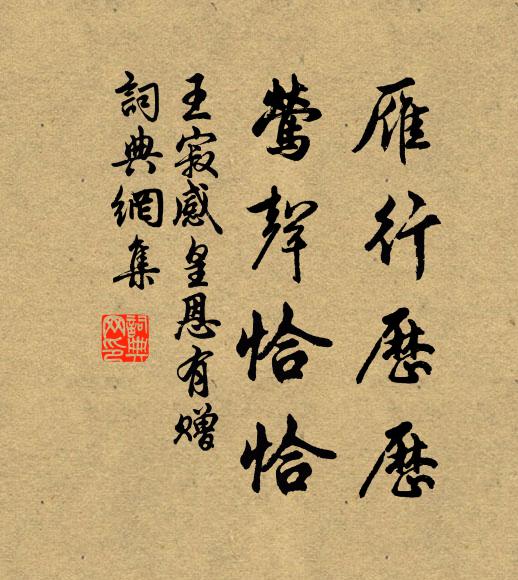 雁行歷歷
鶯聲恰恰
王寂感皇恩有贈
詞典網集
詞典網印